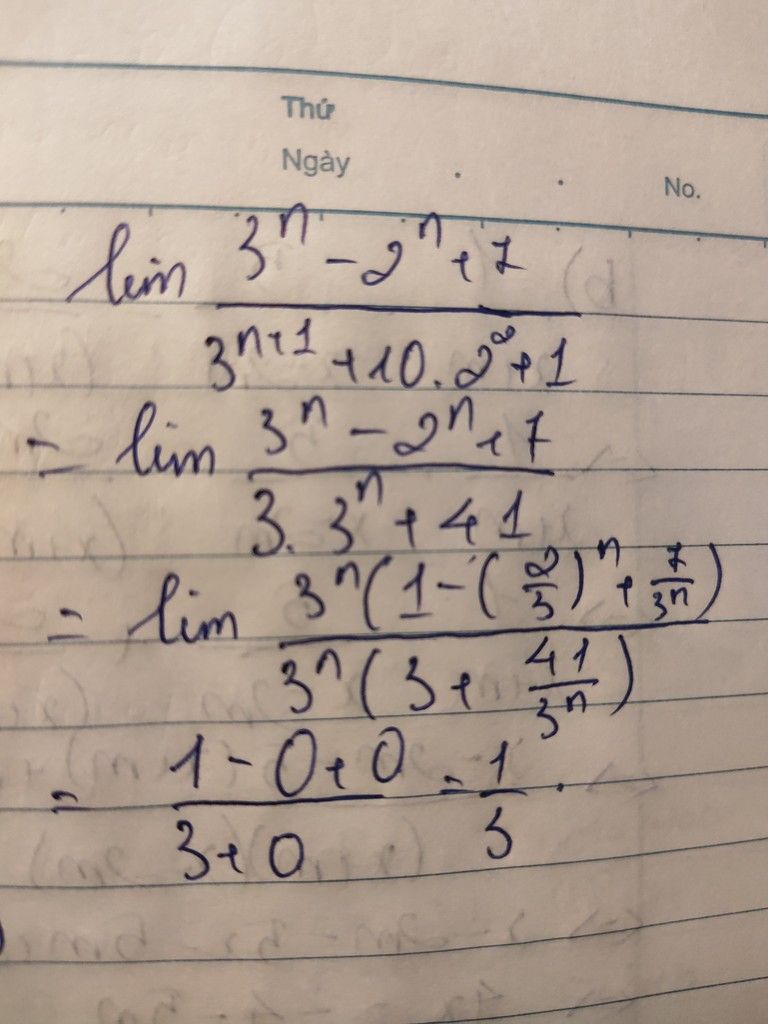 Thứ
Ngày
No.
lim (3^n - 2^n + 7) / (3^(n+1) + 10.2^2 + 1)
= lim (3^n - 2^n + 7) / (3. 3^n + 41)
= lim (3^n (1 - (2/3)^n + 7/3^n)) / (3^n (3 + 41/3^n))
= (1 - 0 + 0) / (3 + 0) = 1/3.